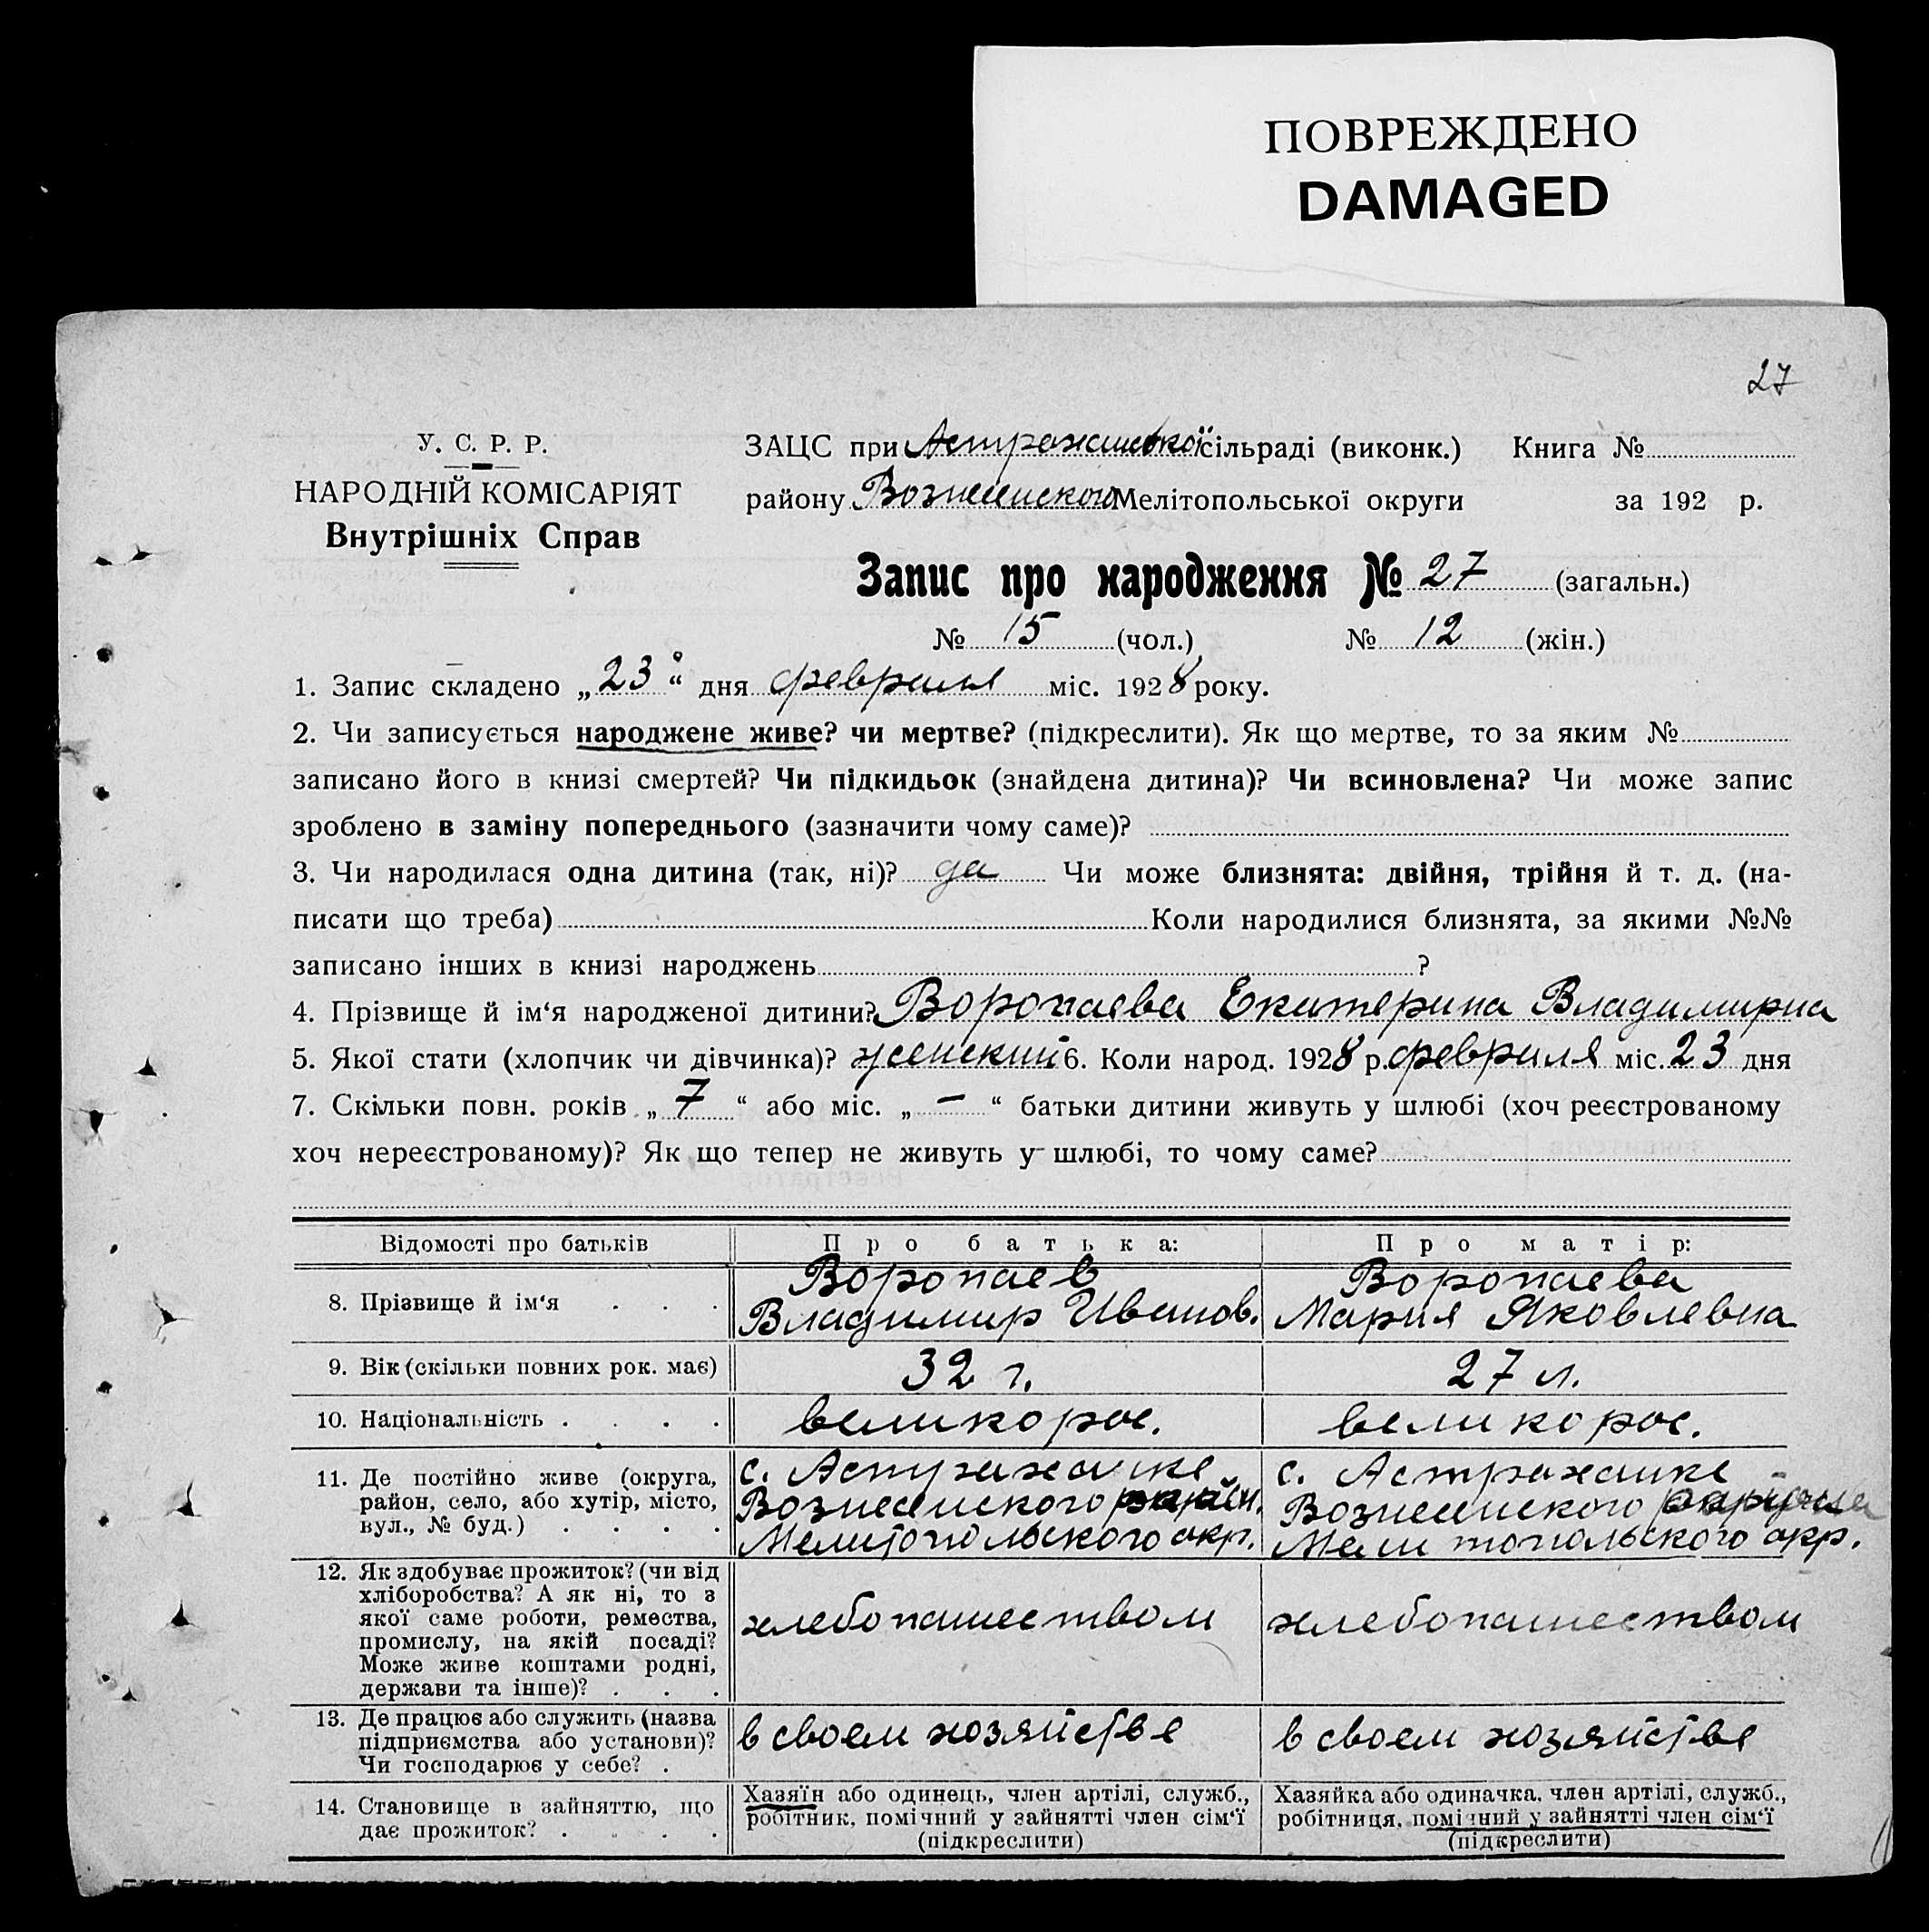 ПОВРЕЖДЕНО
DAMAGED
27
У. С. Р. Р.
НАРОДНІЙ КОМІСАРІЯТ
Внутрішніх Справ
ЗАЦС при Астраханської сільраді (виконк.) Книга №
району Вознесенского Мелітопольської округи за 192 р.
Запис про народження № 27 (загальн.)
№ 15 (чол.) № 12 (жін.)
1. Запис складено „23“ дня февраля міс. 1928 року.
2. Чи записується народжене живе? чи мертве? (підкреслити). Як що мертве, то за яким №
записано його в книзі смертей? Чи підкидьок (знайдена дитина)? Чи всиновлена? Чи може запис
зроблено в заміну попереднього (зазначити чому саме)?
3. Чи народилася одна дитина (так, ні)? да Чи може близнята: двійня, трійня й т. д. (на-
писати що треба) Коли народилися близнята, за якими №№
записано інших в книзі народжень ?
4. Прізвище й ім‘я народженої дитини? Воропаева Екатерина Владимирна
5. Якої стати (хлопчик чи дівчинка)? женский 6. Коли народ. 1928 р. февраля міс. 23 дня
7. Скільки повн. років „ 7 “ або міс. „ — “ батьки дитини живуть у шлюбі (хоч реєстрованому
хоч нереєстрованому)? Як що тепер не живуть у шлюбі, то чому саме?
Відомості про батьків Про батька: Про матір:
8. Прізвище й ім‘я . . .
Воропаев
Владимир Иванов.
Воропаева
Мария Яковлевна
9. Вік (скільки повних рок. має) 32 г. 27 л.
10. Національність . . . . великорос. великорос.
11. Де постійно живе (округа,
район, село, або хутір, місто,
вул., № буд.) . . . .
с. Астраханке
Вознесенского район.
Мелитопольского окр.
с. Астраханке
Вознесенского района
Мелитопольского окр.
12. Як здобуває прожиток? (чи від
хліборобства? А як ні, то з
якої саме роботи, ремества,
промислу, на якій посаді?
Може живе коштами родні,
держави та інше)? . . .
хлебопашеством
хлебопашеством
13. Де працює або служить (назва
підприємства або установи)?
Чи господарює у себе? .
в своем хозяйстве
в своем хозяйстве
14. Становище в зайняттю, що
дає прожиток? . . . .
Хазяїн або одинець, член артілі, служб.,
робітник, помічний у зайнятті член сім‘ї
(підкреслити)
Хазяйка або одиначка, член артілі, служб.,
робітниця, помічний у зайнятті член сім‘ї
(підкреслити)